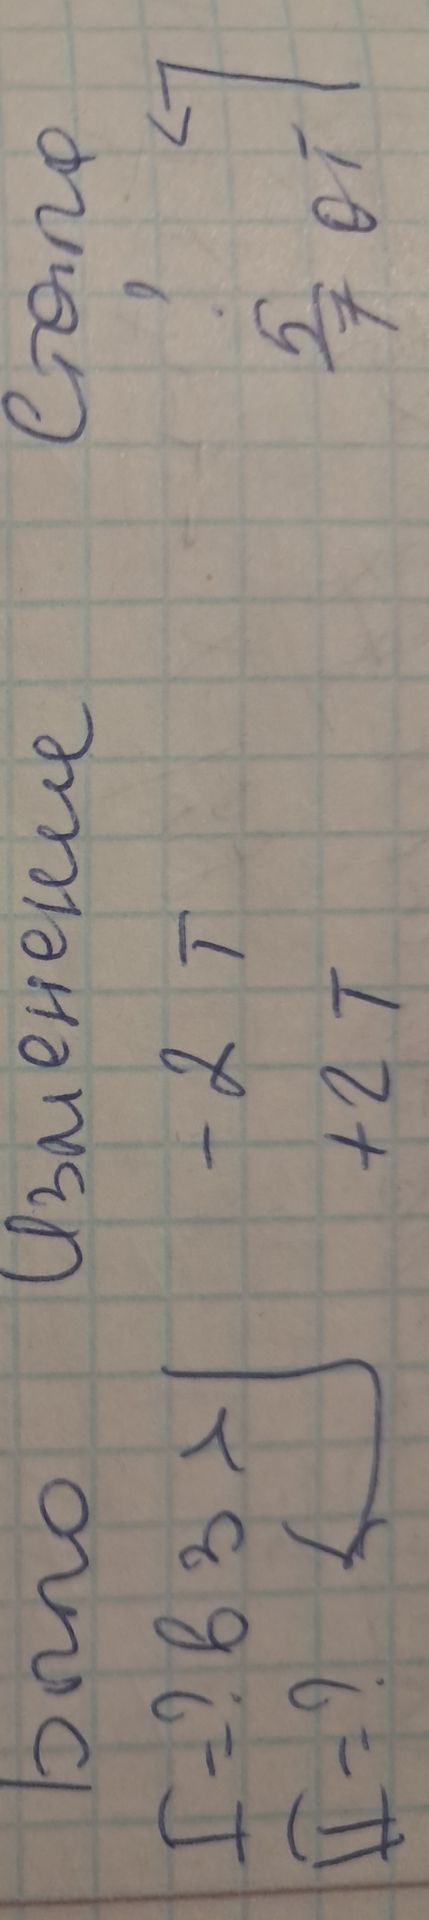 Было Изменение Стало
I = ? в 3 > - 2 Т ?
II = ? + 2 Т 5/7 от